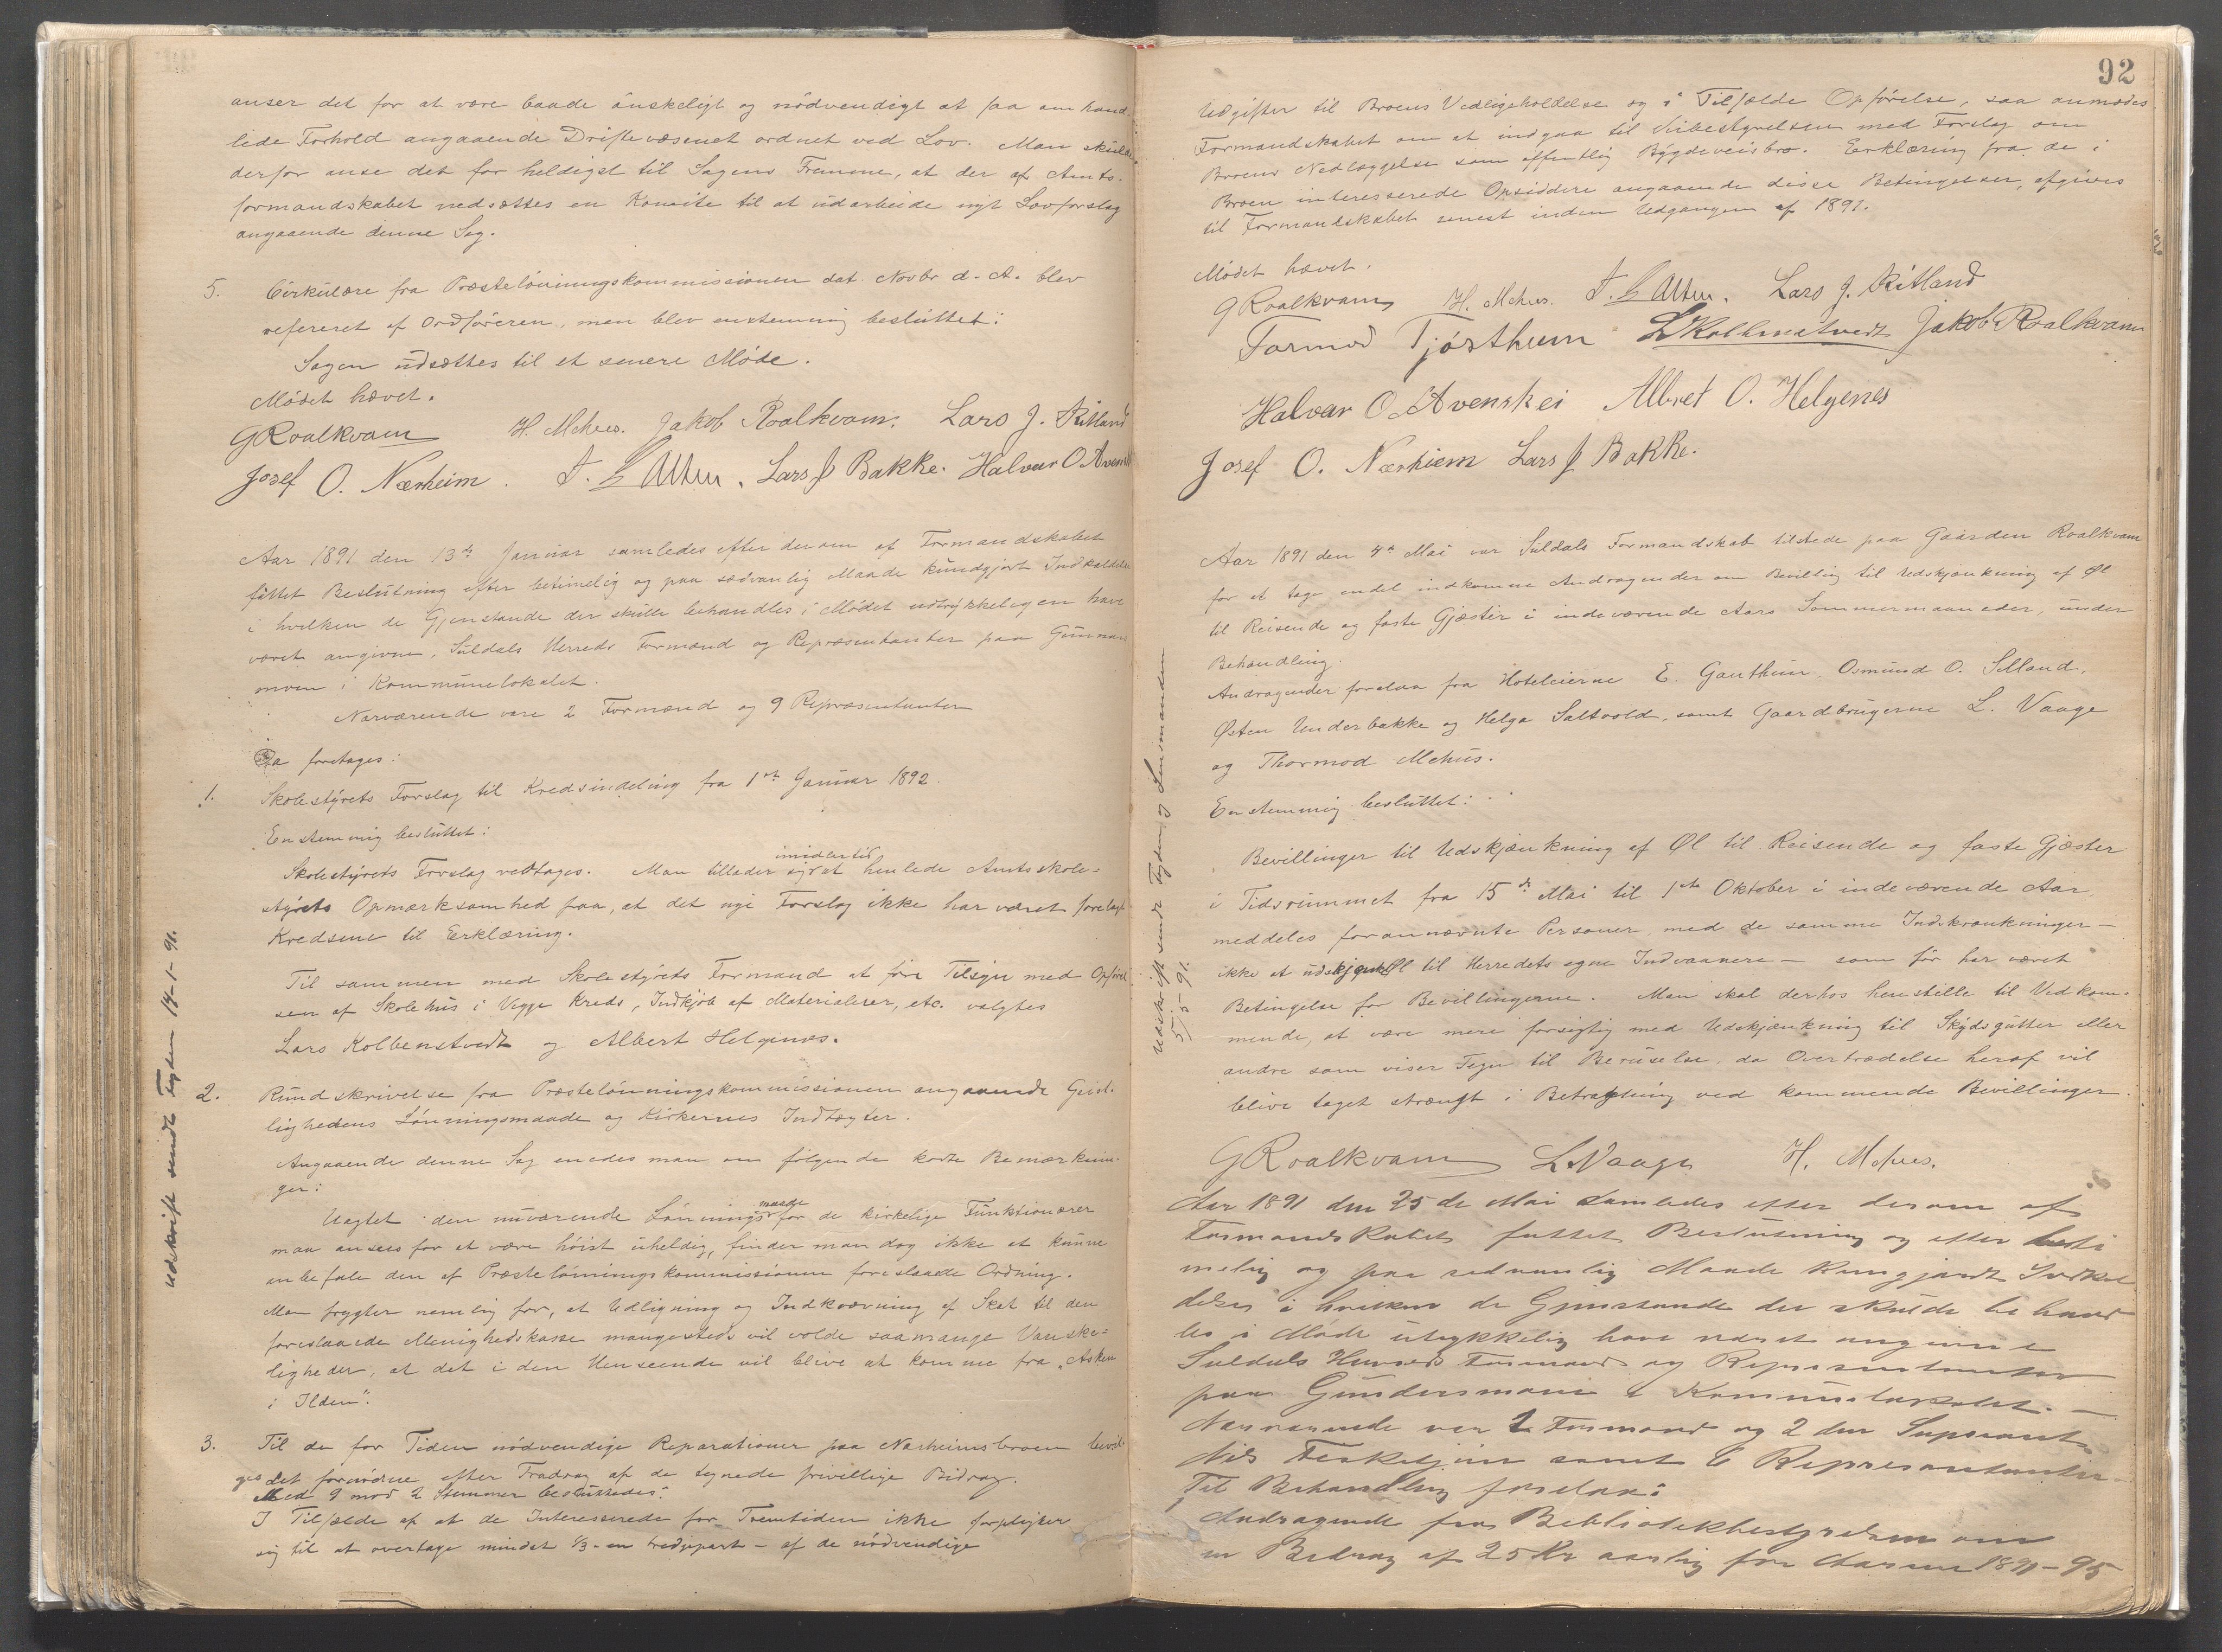 anser det for at være baade ønskeligt og nødvendigt at faa omhand-
lede Forhold angaaende Driftevæsenet ordnet ved Lov. Man skulde
derfor anse det for heldigst til Sagens Fremme, at der af Amts-
formandskabet nedsættes en Komite til at udarbeide nyt Lovforslag
angaaende denne Sag.
5. Cirkulære fra Præstelønningskommissionen dat. Novbr d. A. blev
refereret af Ordføreren, men blev enstemmig besluttet:
Sagen udsættes til et senere Møde.
Mødet hævet.
GRoalkvam H. Mehus. Jakob Roalkvam. Lars J. Ritland
Josef O. Nærheim. Lars J Bakke. Halvar O Avensk
Aar 1891 den 13de Januar samledes efter derom af Formandskabet
fattet Beslutning efter betimelig og paa sædvanlig Maade kundgjort Indkaldelse
i hvilken de Gjenstande der skulle behandles i Mødet udtrykkeligen have
været angivne, Suldals Herreds Formænd og Repræsentanter paa Gunnars
moen i Kommunelokalet.
Nærværende vare 2 Formænd og 9 Repræsentanter
Da foretages:
1. Skolestyrets Forslag til Kredsindeling fra 1ste Januar 1892.
Enstemmig besluttet:
imidlertid
Skolestyrets Forslag vedtages. Man tillader sig at henlede Amtsskole-
styrets Opmærksomhed paa, at det nye Forslag ikke har været forelagt
Kredsene til Erklæring.
Til sammen med Skolestyrets Formand at føre Tilsyn med Opførel
sen af Skolehus i Vegge Kreds, Indkjøb af Materialier, etc. valgtes
Lars Kolbenstvedt og Albert Helgenæs.
2. Rundskrivelse fra Præstelønningskommissionen angaaende Geist-
lighedens Lønningsmaade og Kirkernes Indtægter.
Angaaende denne Sag enedes man om følgende korte Bemærknin-
ger:
maade
Uagtet den nuværende Lønnings for de kirkelige Funktionærer
maa ansees for at være høist uheldig, finder man dog ikke at kunne
anbefale den af Præstelønningskommissionen foreslaaede Ordning.
Man frygter nemlig for, at Udligning og Indkrævning af Skat til den
foreslaaede Menighedskasse mangesteds vil volde saamange Vanske-
ligheder, at det i den Henseende vil blive at komme fra „Asken
i Ilden".
3. Til de for Tiden nødvendige Reparationer paa Nærheimsbroen bevil-
ges det fornødne efter Fradrag af de tegnede frivillige Bidrag.
Med 9 mod 2 Stemmer besluttedes:
I Tilfælde af at de Interesserede for Fremtiden ikke forpligter
sig til at overtage mindst 1/3 - en tredjepart - af de nødvendige
Udskrift sendt Fogden 14-1-91.
92
Udgifter til Broens Vedligeholdelse og i Tilfælde Opførelse, saa anmodes
Formandskabet om at indgaa til Veibestyrelsen med Forslag om
Broens Nedlæggelse som offentlig Bygdeveisbro. Erklæring fra de i
Broen interesserede Opsiddere angaaende disse Betingelser, afgives
til Formandskabet senest inden Udgangen af 1891.
Mødet hævet.
GRoalkvam H. Mehus. Lars J. Ritland
Tormod Tjøsthem LKolbenstvedt Jakob Roalkvam
Halvar O Avenskei Albret O. Helgenes
Josef O. Nærhiem Lars J Bakke.
Aar 1891 den 4de Mai var Suldals Formandskab tilstede paa Gaarden Roalkvam
for at tage endel indkomne Andragender om Bevilling til Udskjænkning af Øl
til Reisende og faste Gjæster i indeværende Aars Sommermaaneder, under
Behandling.
Andragender forelaa fra Hoteleierne E. Gauthun, Osmund O. Selland,
Østen Underbakke og Helga Saltvold, samt Gaardbrugerne L. Vaage
og Thormod Mehus.
Enstemmig besluttet:
Bevillinger til Udskjænkning af Øl til Reisende og faste Gjæster
i Tidsrummet fra 15de Mai til 1ste Oktober i indeværende Aar
meddeles forannævnte Personer, med de samme Indskrænkninger -
ikke at udskjænke Øl til Herredets egne Indvaanere - som før har været
Betingelse for Bevillingerne. Man skal derhos henstille til Vedkom-
mende, at være mere forsigtig med Udskjænkning til Skydsgutter eller
andre som viser Tegn til Beruselse, da Overtrædelse heraf vil
blive taget strængt i Betragtning ved kommende Bevillinger.
GRoalkvam LVaage H. Mehus.
Udskrift sendt Fogden og Lensmanden
5-5-91.
Aar 1891 den 25de Mai samledes efter derom af
Formandskabet fattet Beslutning og efter beti
melig og paa sedvanlig Maade kungjordt Indkal
delse i hvilken de Gjenstande der skulde behand
les i Møde utrykkelig have været angivne
Suldals Herreds Formænd og Represantanter
paa Gundersmoen i Komunelokalet. -
Nærværende var 2 Formænd og 2den Supleant
Nils Feskekjøn samt 6 Represantanter.
Til Behandling forelaa:
1 Andragende fra Bebliotekbestyrelsen om
en Bidrag af 25 Kr aarlig for Aarene 1891-95